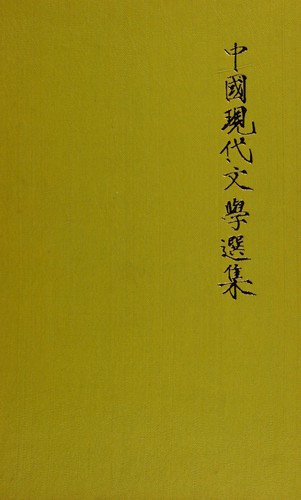 中國現代文學選集